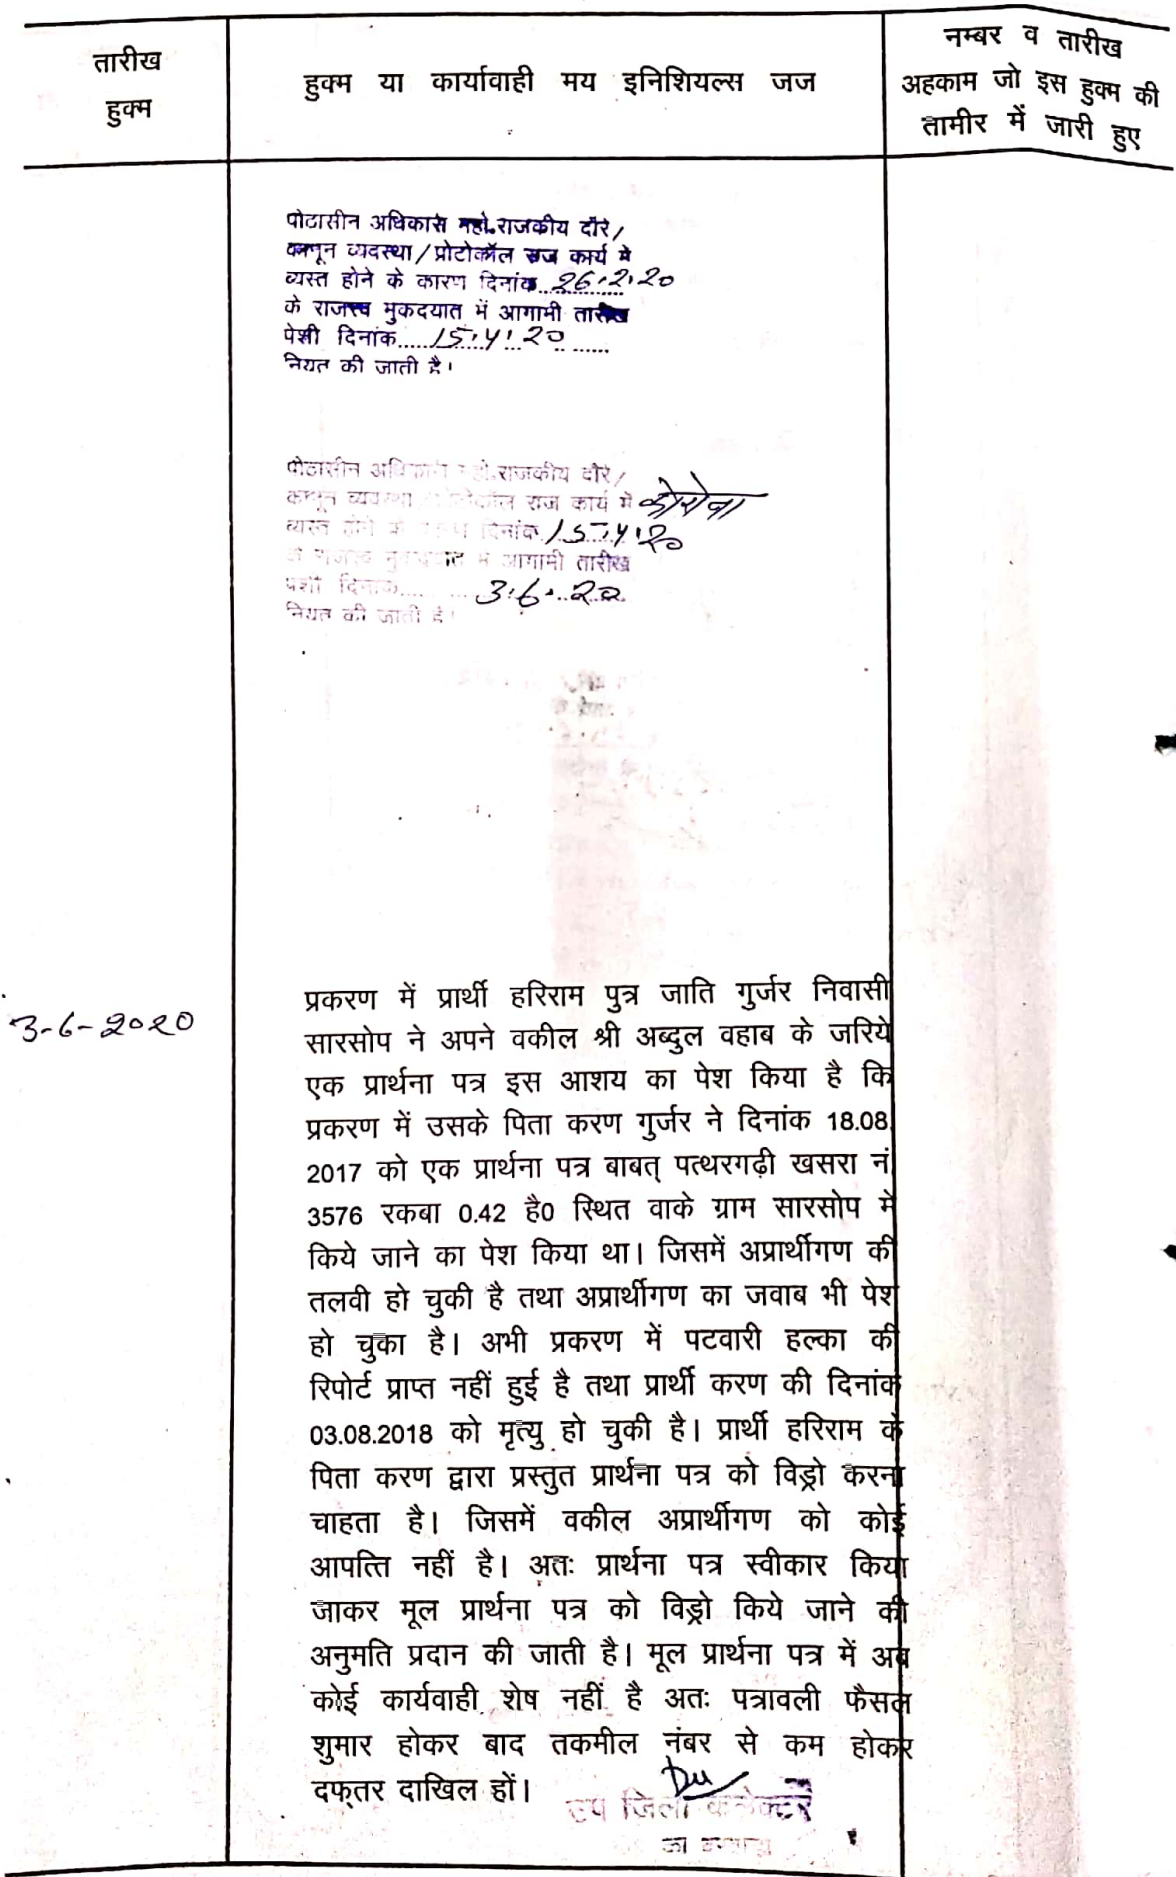 तारीख
हुक्म
हुक्म या कार्यावाही मय इनिशियल्स जज
नम्बर व तारीख
अहकाम जो इस हुक्म की
तामीर में जारी हुए
पीठासीन अधिकारी महो.राजकीय दौरे/
कानून व्यवस्था/प्रोटोकॉल राज कार्य मे
व्यस्त होने के कारण दिनांक 26.2.20
के राजस्व मुकदयात में आगामी तारीख
पेशी दिनांक......15.4.20......
नियत की जाती है।
पीठासीन अधिकारी महो.राजकीय दौरे/
कानून व्यवस्था प्रोटोकॉल राज कार्य मे कोरोना
व्यस्त होने के कारण दिनांक 15.4.20
के राजस्व मुकदयात में आगामी तारीख
पेशी दिनांक...... 3.6.20
नियत की जाती है।
3-6-2020
प्रकरण में प्रार्थी हरिराम पुत्र जाति गुर्जर निवासी
सारसोप ने अपने वकील श्री अब्दुल वहाब के जरिये
एक प्रार्थना पत्र इस आशय का पेश किया है कि
प्रकरण में उसके पिता करण गुर्जर ने दिनांक 18.08.
2017 को एक प्रार्थना पत्र बाबत् पत्थरगढ़ी खसरा नं.
3576 रकबा 0.42 है0 स्थित वाके ग्राम सारसोप में
किये जाने का पेश किया था। जिसमें अप्रार्थीगण की
तलवी हो चुकी है तथा अप्रार्थीगण का जवाब भी पेश
हो चुका है। अभी प्रकरण में पटवारी हल्का की
रिपोर्ट प्राप्त नहीं हुई है तथा प्रार्थी करण की दिनांक
03.08.2018 को मृत्यु हो चुकी है। प्रार्थी हरिराम के
पिता करण द्वारा प्रस्तुत प्रार्थना पत्र को विड्रो करना
चाहता है। जिसमें वकील अप्रार्थीगण को कोई
आपत्ति नहीं है। अतः प्रार्थना पत्र स्वीकार किया
जाकर मूल प्रार्थना पत्र को विड्रो किये जाने की
अनुमति प्रदान की जाती है। मूल प्रार्थना पत्र में अब
कोई कार्यवाही शेष नहीं है अतः पत्रावली फैसल
शुमार होकर बाद तकमील नंबर से कम होकर
दफ्तर दाखिल हों।
उप जिला कलेक्टर